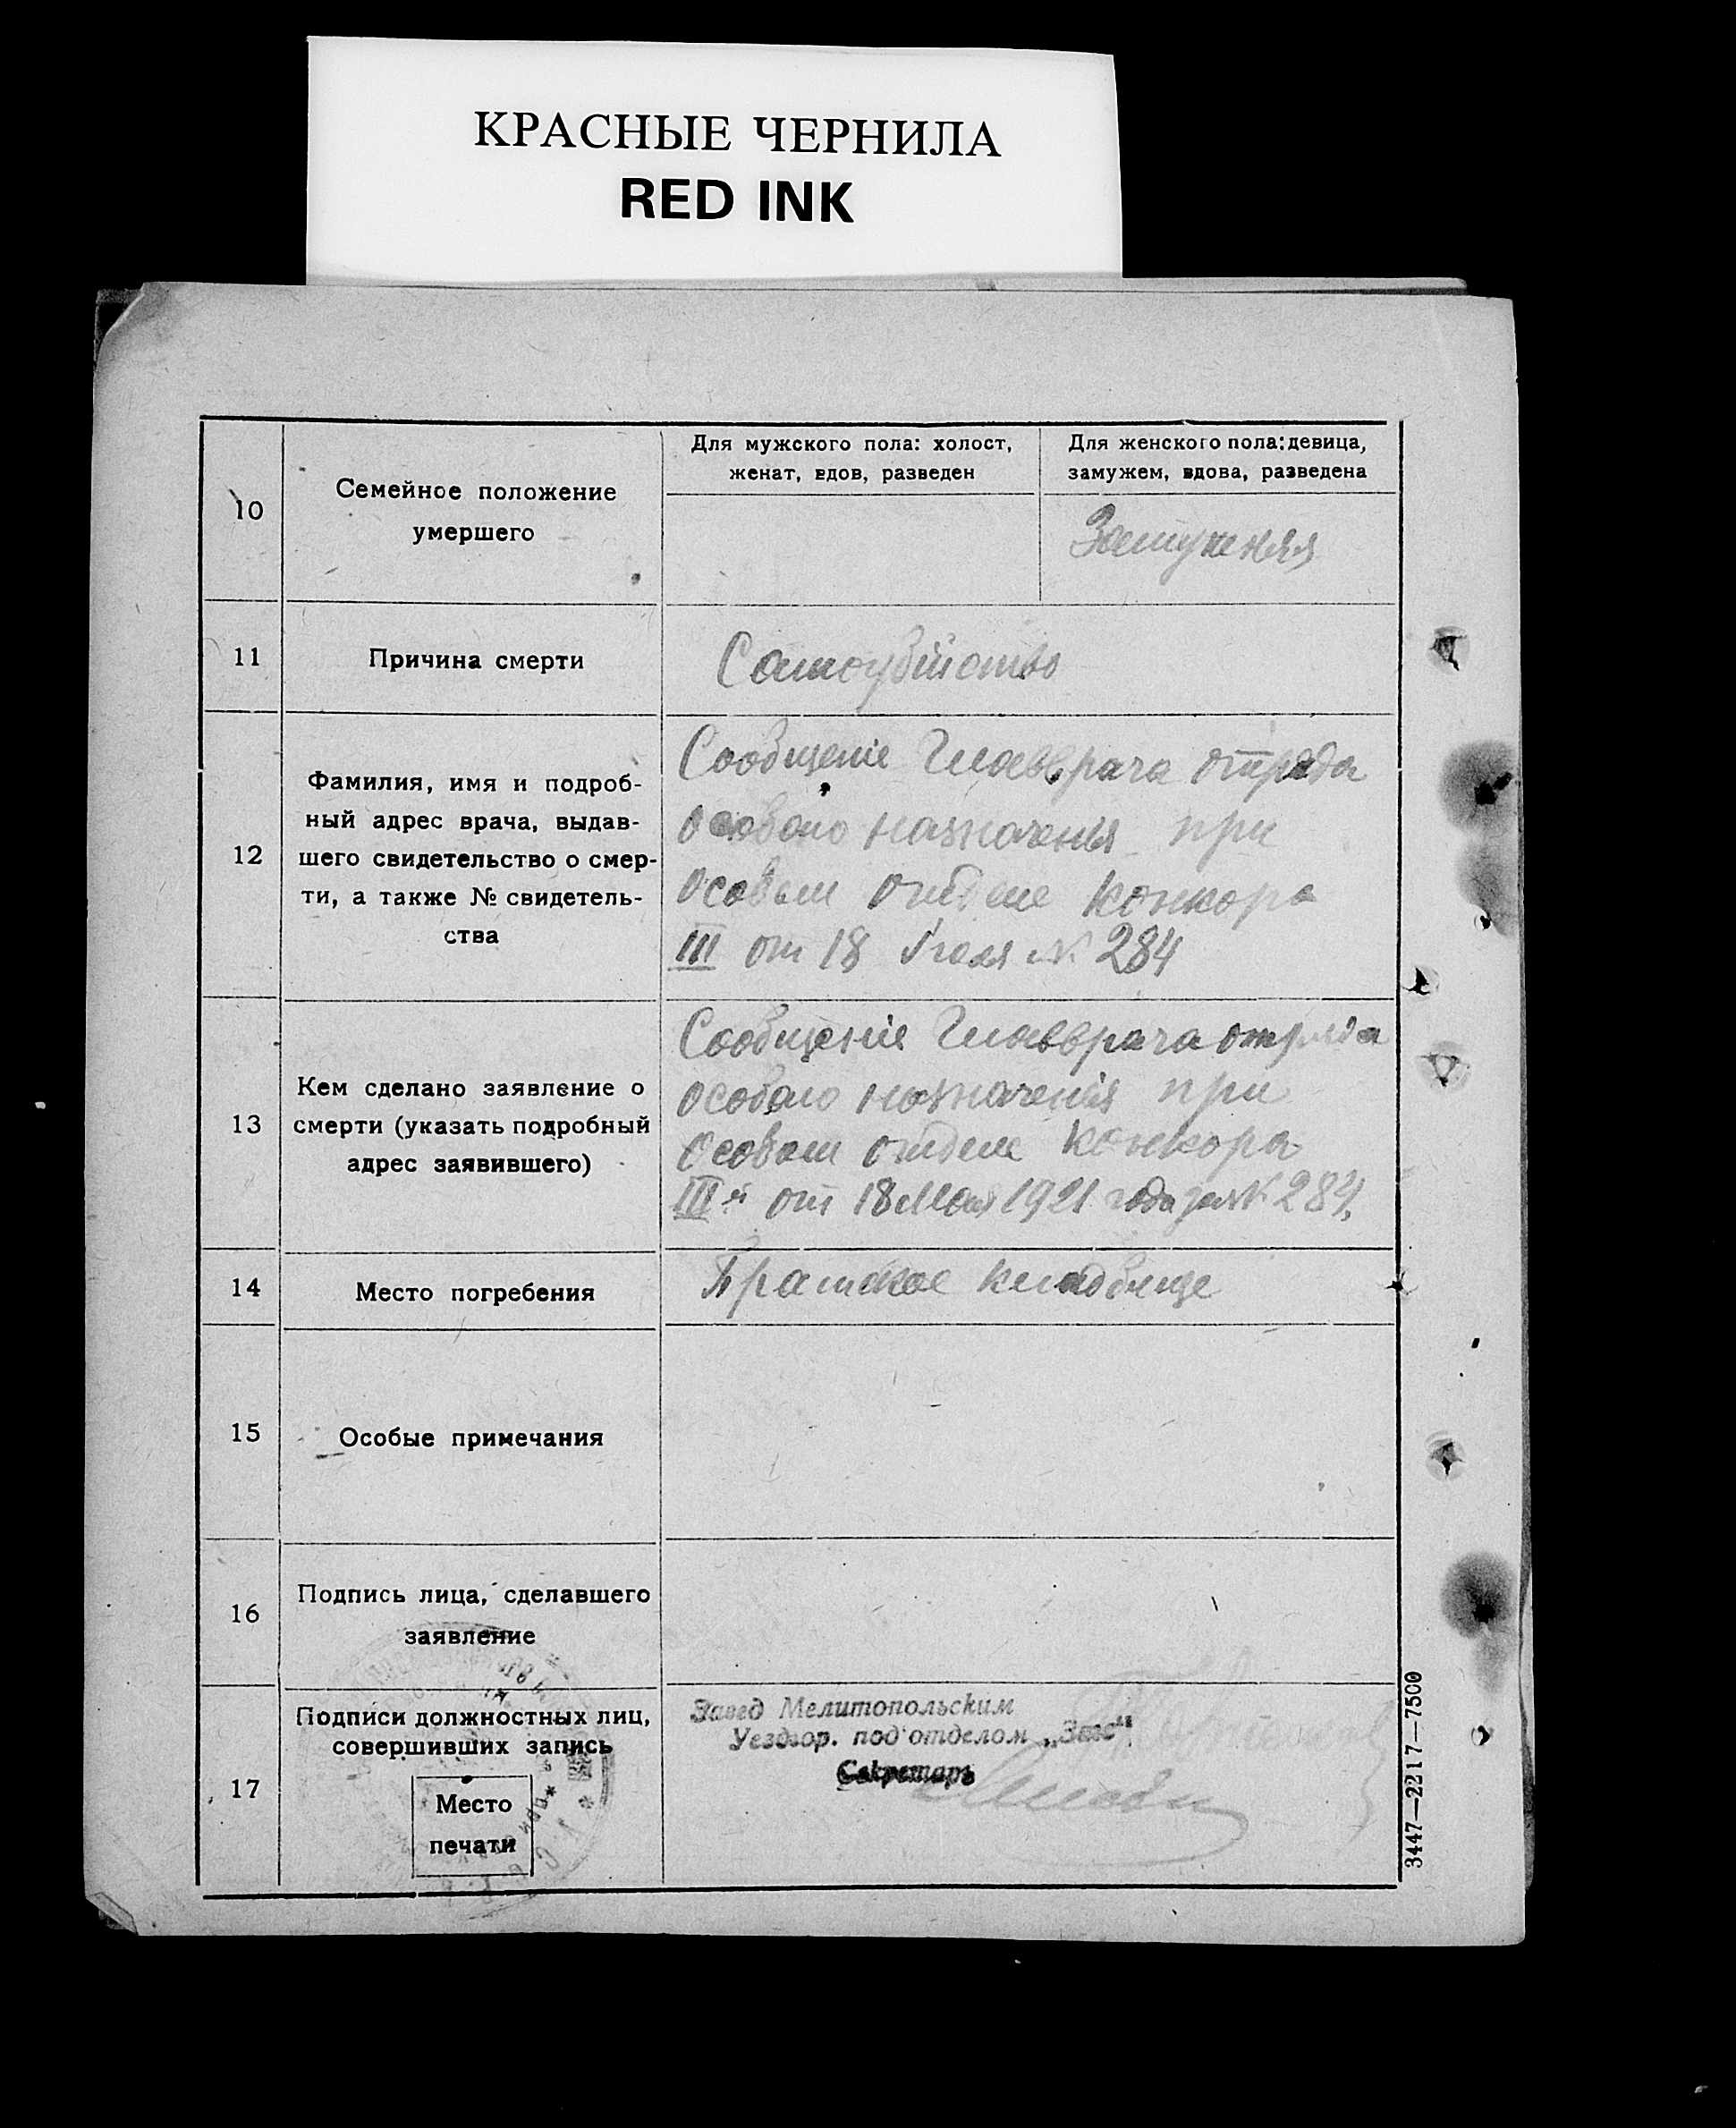 КРАСНЫЕ ЧЕРНИЛА
RED INK
10
Семейное положение
умершего
Для мужского пола: холост,
женат, вдов, разведен
Для женского пола: девица,
замужем, вдова, разведена
Замужняя
11
Причина смерти
Самоубійство
12
Фамилия, имя и подроб-
ный адрес врача, выдав-
шего свидетельство о смер-
ти, а также № свидетель-
ства
Сообщеніе Главврача отряда
особого назначенія при
Особом отделе Конкора
III от 18 № 284
13
Кем сделано заявление о
смерти (указать подробный
адрес заявившего)
Сообщеніе Главврача отряда
особого назначенія при
Особом отделе Конкора
III й от 18 Мая 1921 года за № 284.
14
Место погребения
Братское кладбище
15
Особые примечания
16
Подпись лица, сделавшего
заявление
17
Подписи должностных лиц,
совершивших запись
Место
печати
Завед Мелитопольским
Уездгор. под'отделом „Загс"
Секретарь
3447—2217—7500